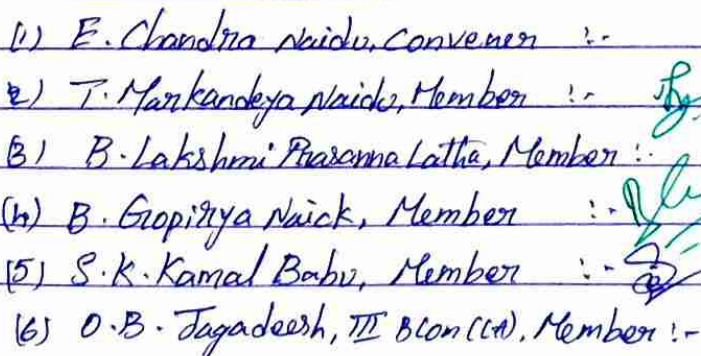 (1) E. Chandra Naidu, Convener :-
2) T. Markandeya Naidu, Member :-
(3) B. Lakshmi Prasanna Latha, Member :-
(4) B. Gopiriya Naick, Member :-
(5) S.K. Kamal Babu, Member :-
(6) O.B. Jagadeesh, III BCom (CA), Member :-